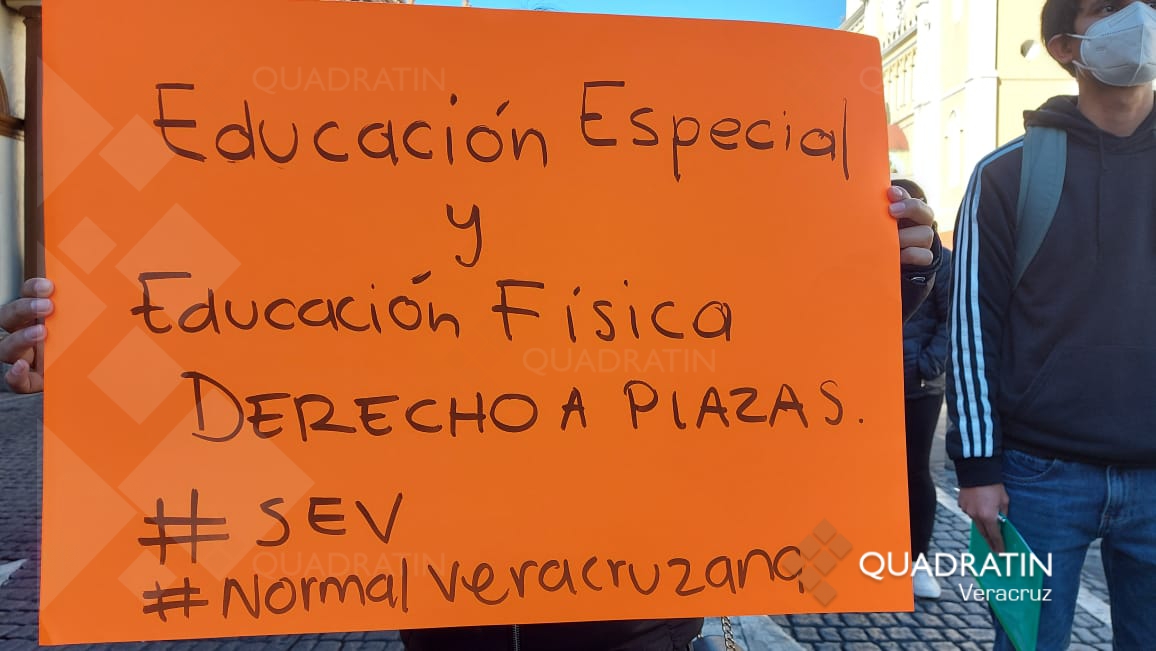 Educación Especial
y
Educación Física
DERECHO A PLAZAS.
# SEV
#Normal Veracruzana
QUADRATIN
Veracruz
QUADRATIN
QUADRATIN
QUADRATIN